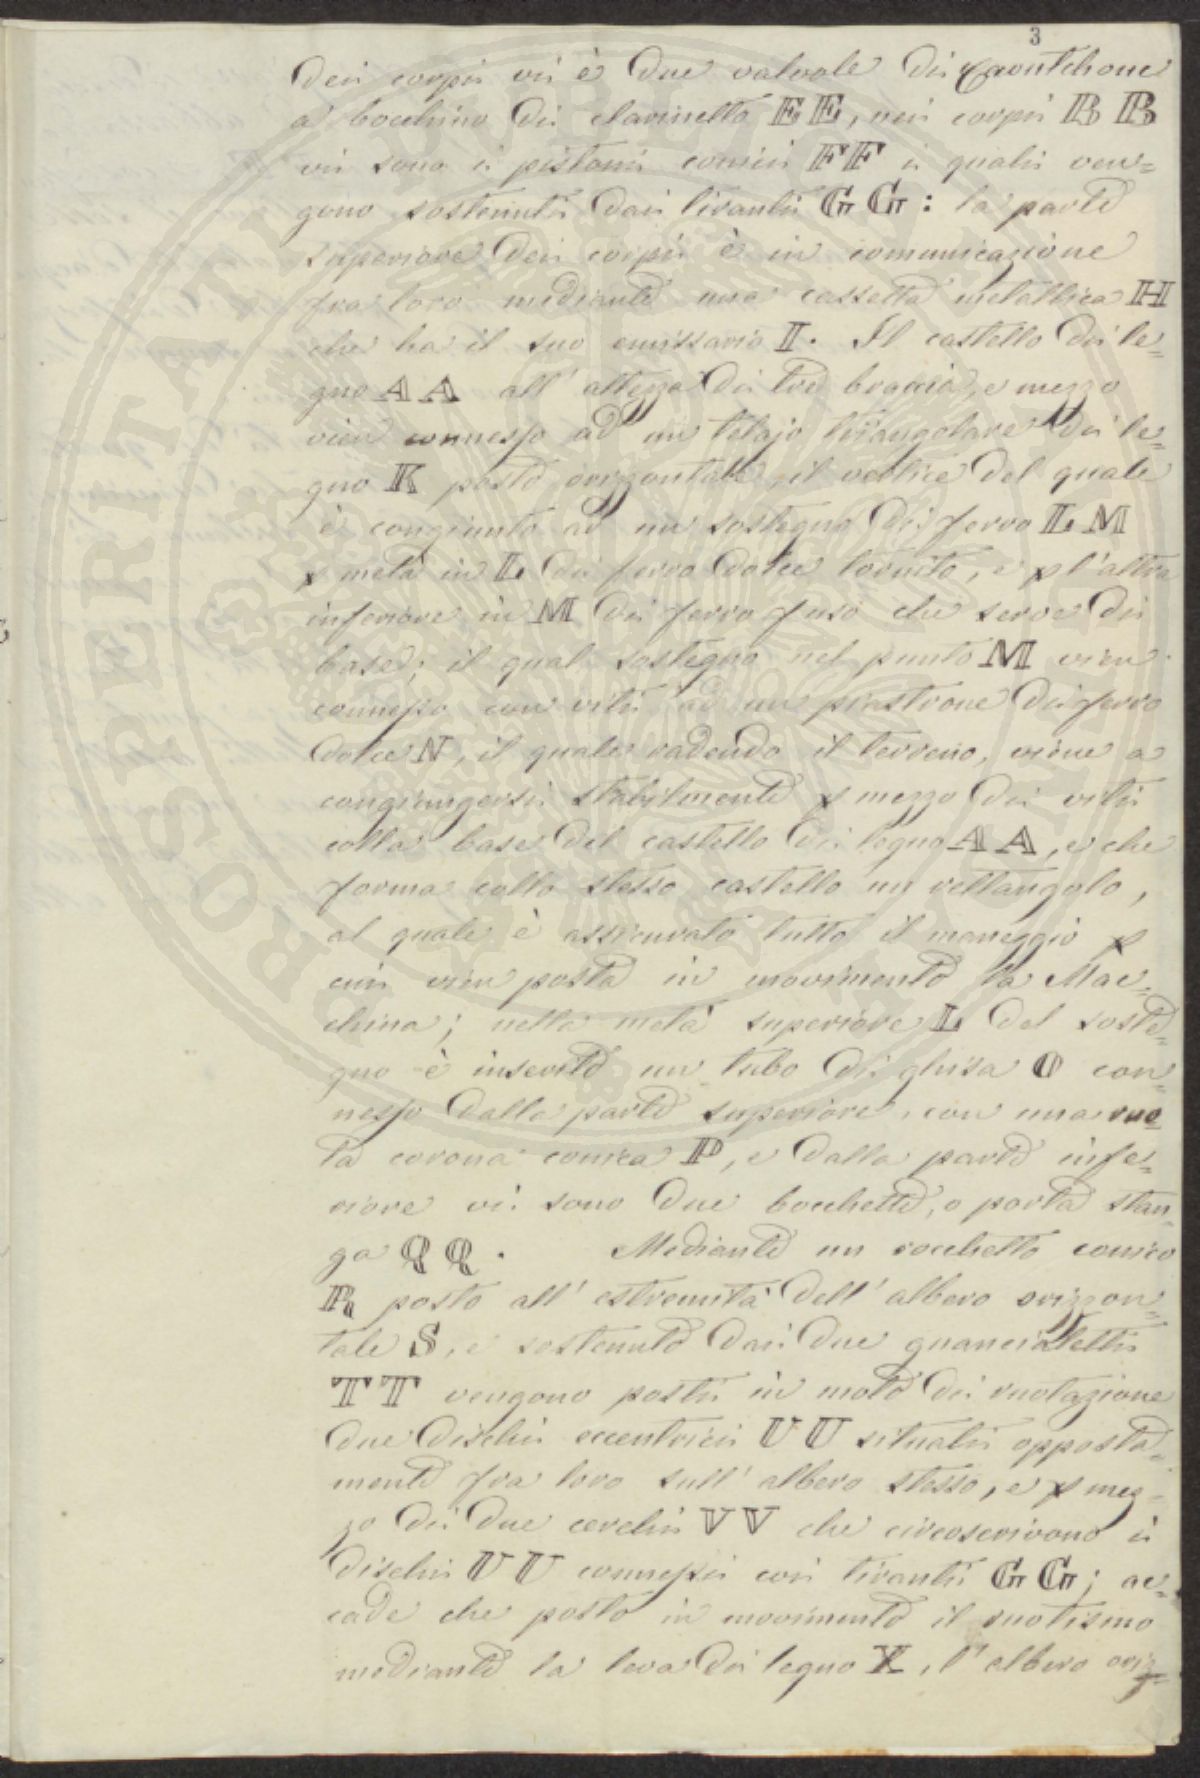 3
dei corpi vi è due valvole di Caoutchouc
a bocchino di clarinetto EE, nei corpi BB
vi sono i pistoni conici FF i quali ven=
gono sostenuti dai tiranti GG: la parte
superiore dei corpi è in comunicazione
fra loro mediante una cassetta metallica H
che ha il suo emissario I. Il castello di le=
gno AA all' altezza di tre braccia, e mezzo
vien connesso ad un telajo triangolare di le=
gno K posto orizzontale, il vertice del quale
è congiunto ad un sostegno di ferro LM
p metà in L di ferro dolce tornito, e p l'altra
inferiore in M di ferro fuso che serve di
base; il qual sostegno nel punto M vien
connesso con viti ad un piastrone di ferro
dolce N, il quale radendo il terreno, viene a
congiungersi stabilmente p mezzo di viti
colla base del castello di legno AA, e che
forma collo stesso castello un rettangolo,
al quale è assicurato tutto il maneggio p
cui vien posta in movimento la Mac=
china; nella metà superiore L del soste=
gno è inserito un tubo di ghisa O con=
nesso dalla parte superiore, con una ruo=
ta corona conica P, e dalla parte infe=
riore vi sono due bocchette, o porta stan=
ga QQ. Mediante un rocchetto conico
R posto all' estremità dell' albero orizzon=
tale S, e sostenuto dai due guancialetti
TT vengono posti in moto di ruotazione
due dischi eccentrici UU situati opposta=
mente fra loro sull' albero stesso, e p mez=
zo di due cerchi VV che circoscrivono i
dischi UU connessi coi tiranti GG; ac=
cade che posto in movimento il ruotismo
mediante la leva di legno X, l' albero oriz=